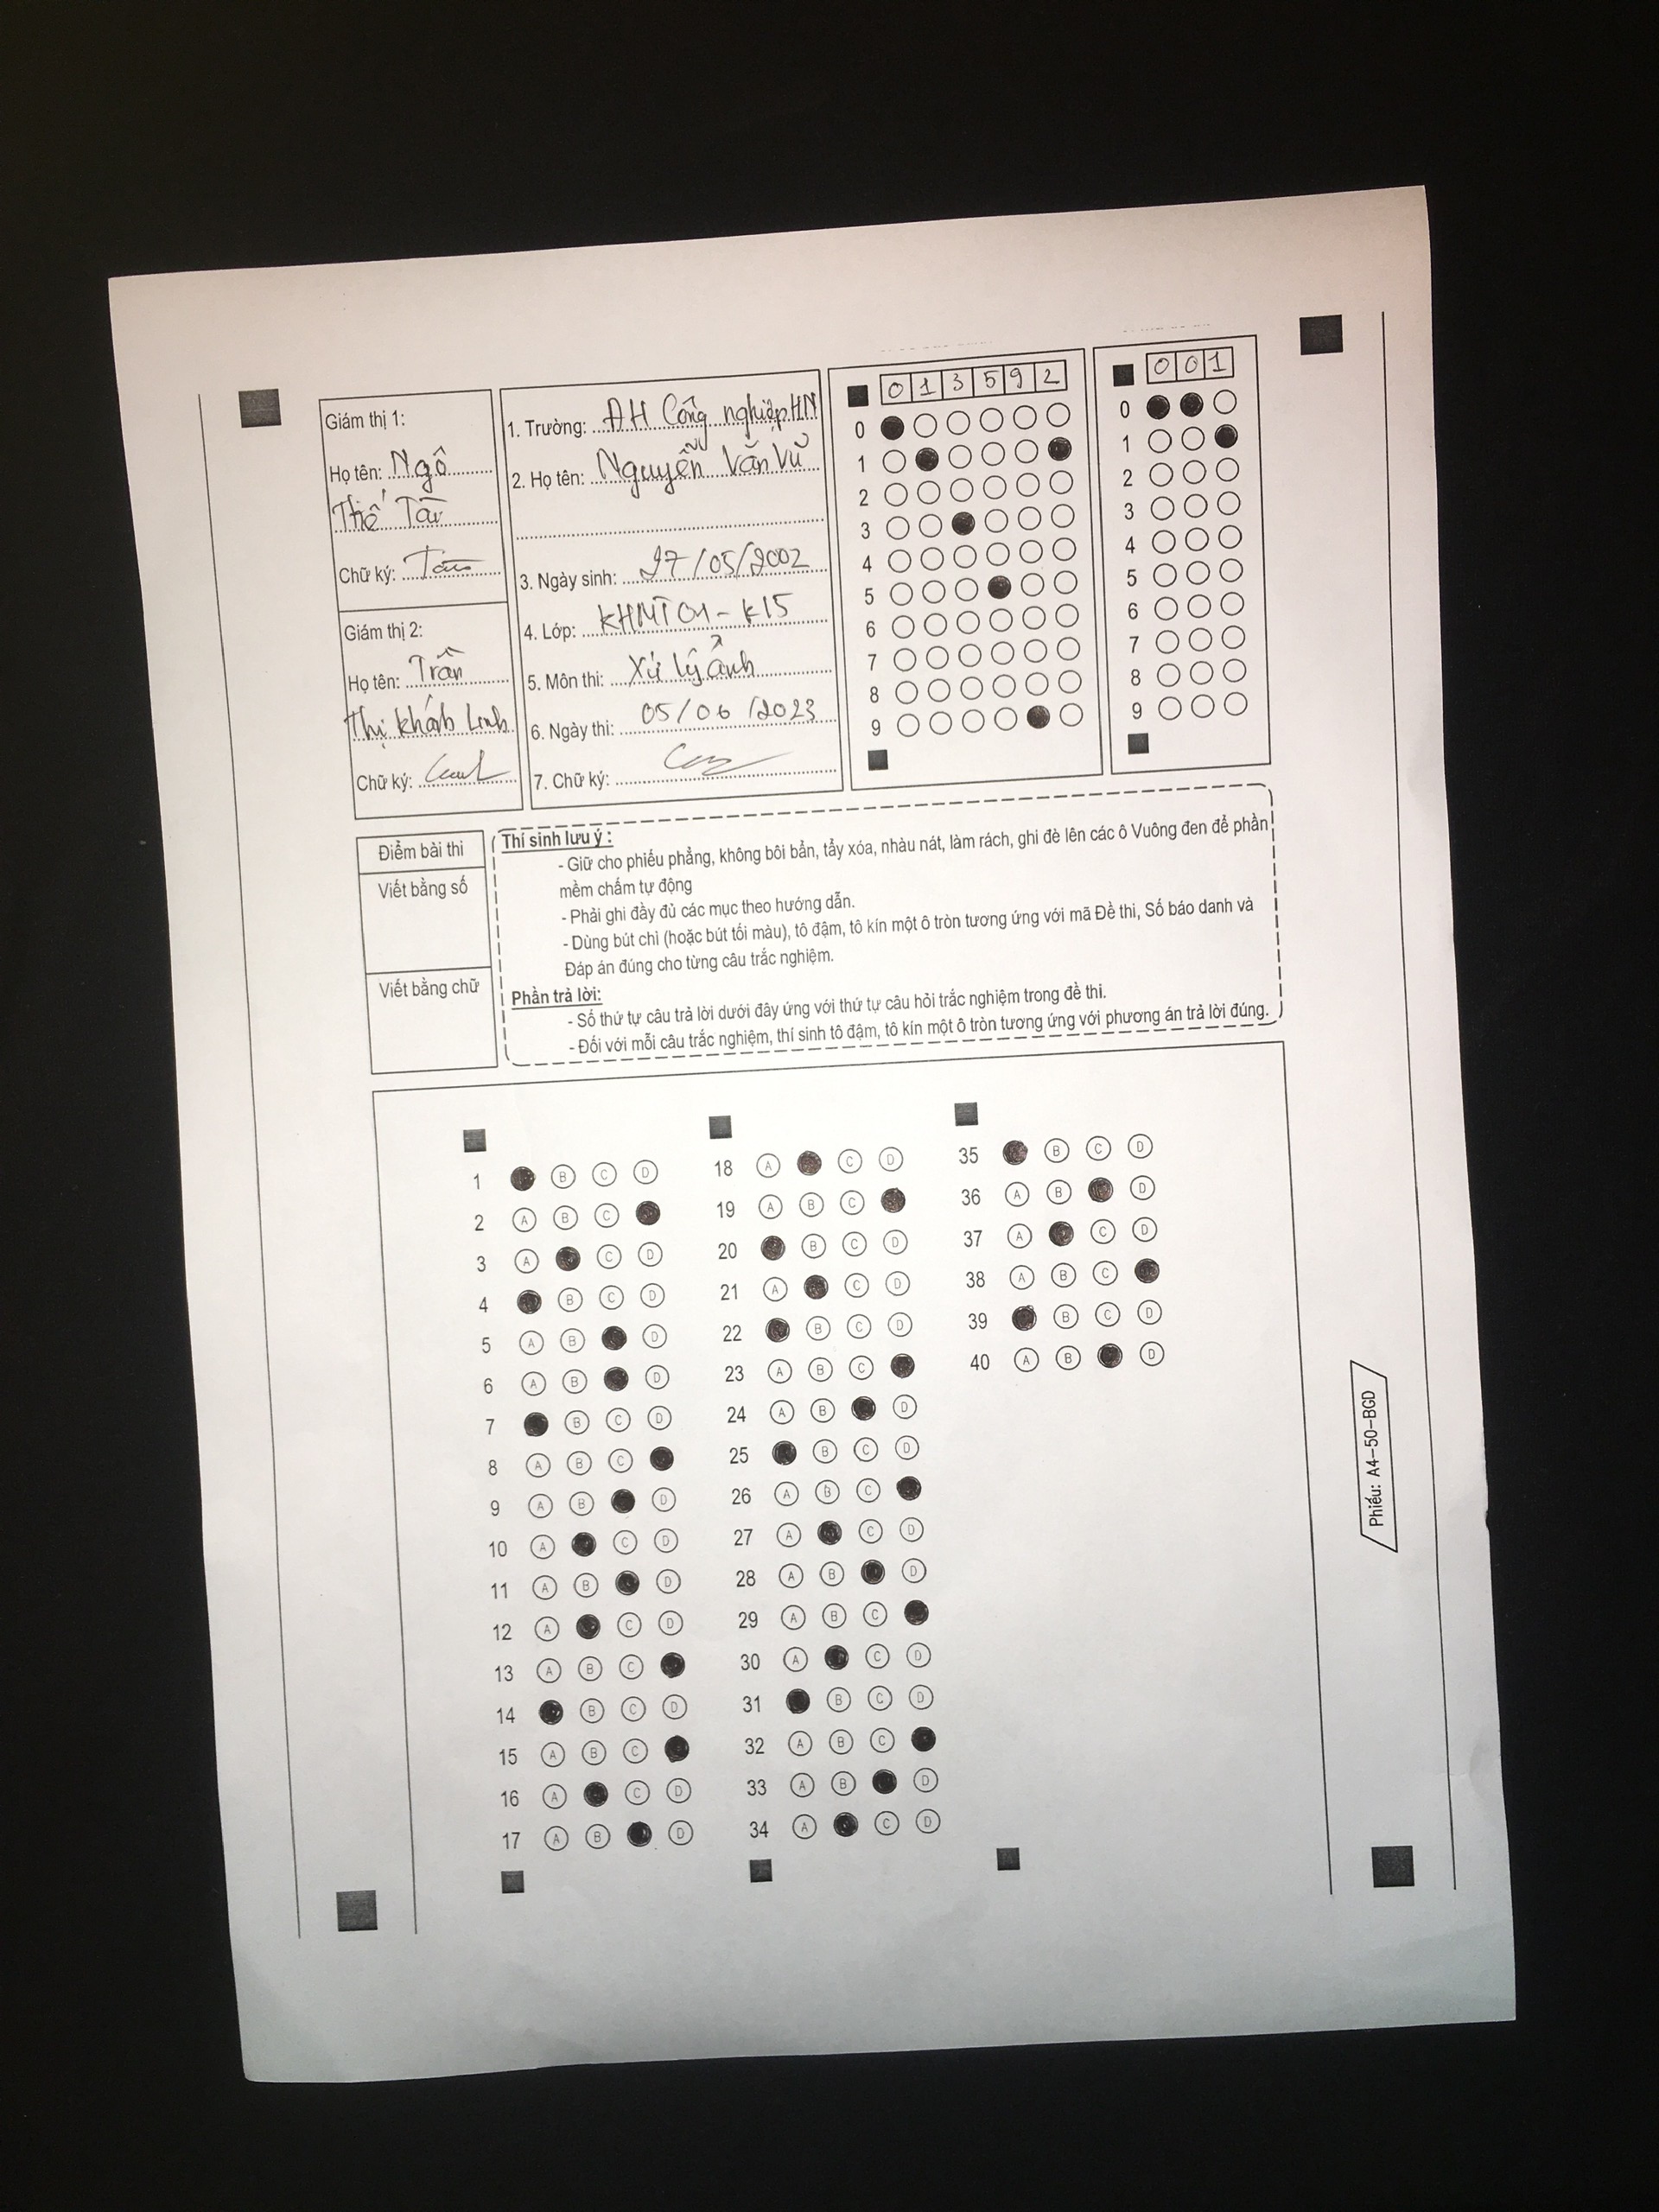 Giám thị 1:
Họ tên: Ngô
Thế Tài
Chữ ký: Tài
Giám thị 2:
Họ tên: Trần
Thị Khánh Linh
Chữ ký:
1. Trường: ĐH Công nghiệp HN
2. Họ tên: Nguyễn Văn Vũ
3. Ngày sinh: 27/05/2002
4. Lớp: KHMT01-K15
5. Môn thi: Xử lý ảnh
6. Ngày thi: 05/06/2023
7. Chữ ký:
0 1 3 5 9 2
0
1
2
3
4
5
6
7
8
9
0 0 1
0
1
2
3
4
5
6
7
8
9
Điểm bài thi
Viết bằng số
Viết bằng chữ
Thí sinh lưu ý :
- Giữ cho phiếu phẳng, không bôi bẩn, tẩy xóa, nhàu nát, làm rách, ghi đè lên các ô Vuông đen để phần
mềm chấm tự động
- Phải ghi đầy đủ các mục theo hướng dẫn.
- Dùng bút chì (hoặc bút tối màu), tô đậm, tô kín một ô tròn tương ứng với mã Đề thi, Số báo danh và
Đáp án đúng cho từng câu trắc nghiệm.
Phần trả lời:
- Số thứ tự câu trả lời dưới đây ứng với thứ tự câu hỏi trắc nghiệm trong đề thi.
- Đối với mỗi câu trắc nghiệm, thí sinh tô đậm, tô kín một ô tròn tương ứng với phương án trả lời đúng.
1 B C D
2 A B C
3 A C D
4 B C D
5 A B D
6 A B D
7 B C D
8 A B C
9 A B D
10 A C D
11 A B D
12 A C D
13 A B C
14 B C D
15 A B C
16 A C D
17 A B D
18 A C D
19 A B C
20 B C D
21 A C D
22 B C D
23 A B C
24 A B D
25 B C D
26 A B C
27 A C D
28 A B D
29 A B C
30 A C D
31 B C D
32 A B C
33 A B D
34 A C D
35 B C D
36 A B D
37 A C D
38 A B C
39 B C D
40 A B D
Phiếu: A4-50-BGD